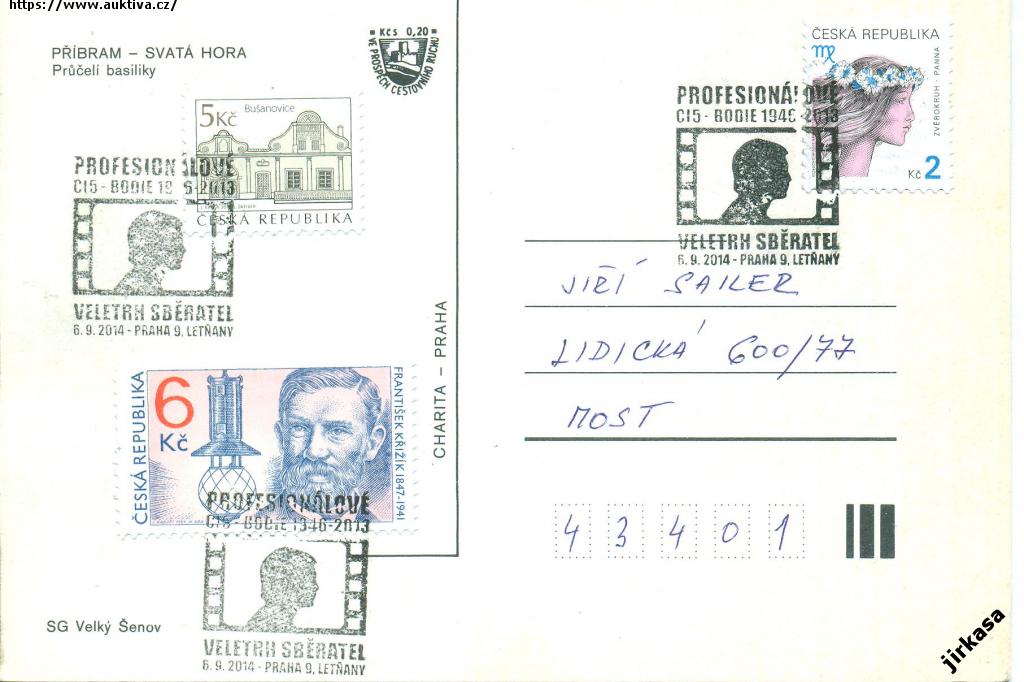 https://www.auktiva.cz/
PŘÍBRAM – SVATÁ HORA
Průčelí basiliky
Kčs 0,20
VE PROSPĚCH CESTOVNÍHO RUCHU
5Kč
Bušanovice
ČESKÁ REPUBLIKA
PROFESIONÁLOVÉ
CI5 - BODIE 1946-2013
VELETRH SBĚRATEL
6.9.2014 - PRAHA 9, LETŇANY
ČESKÁ REPUBLIKA
6
Kč
FRANTIŠEK KŘIŽÍK 1847-1941
PROFESIONÁLOVÉ
CI5 - BODIE 1946-2013
VELETRH SBĚRATEL
6.9.2014 - PRAHA 9, LETŇANY
SG Velký Šenov
CHARITA – PRAHA
ČESKÁ REPUBLIKA
ZVĚROKRUH · PANNA
Kč 2
PROFESIONÁLOVÉ
CI5 - BODIE 1946-2013
VELETRH SBĚRATEL
6.9.2014 - PRAHA 9, LETŇANY
JIŘÍ SAILER
LIDICKÁ 600/77
MOST
43401
jirkasa